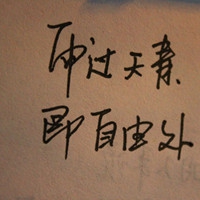 雨过天青.
即自由处